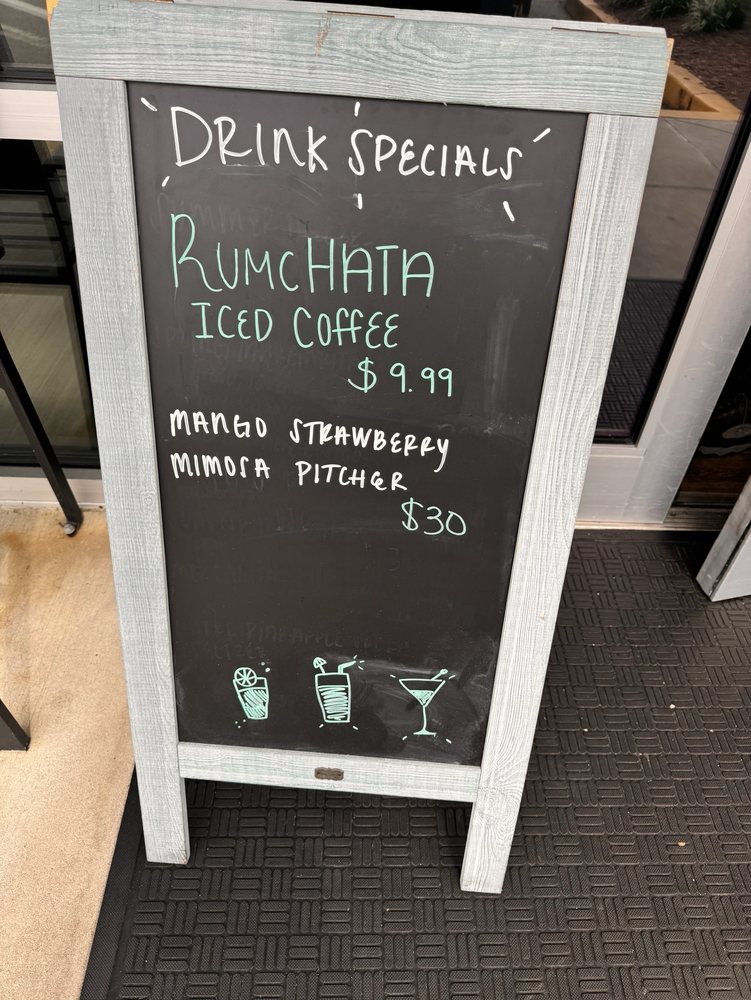 DRINK SPECIALS
RUMCHATA
ICED COFFEE
$9.99
MANGO STRAWBERRY
MIMOSA PITCHER
$30